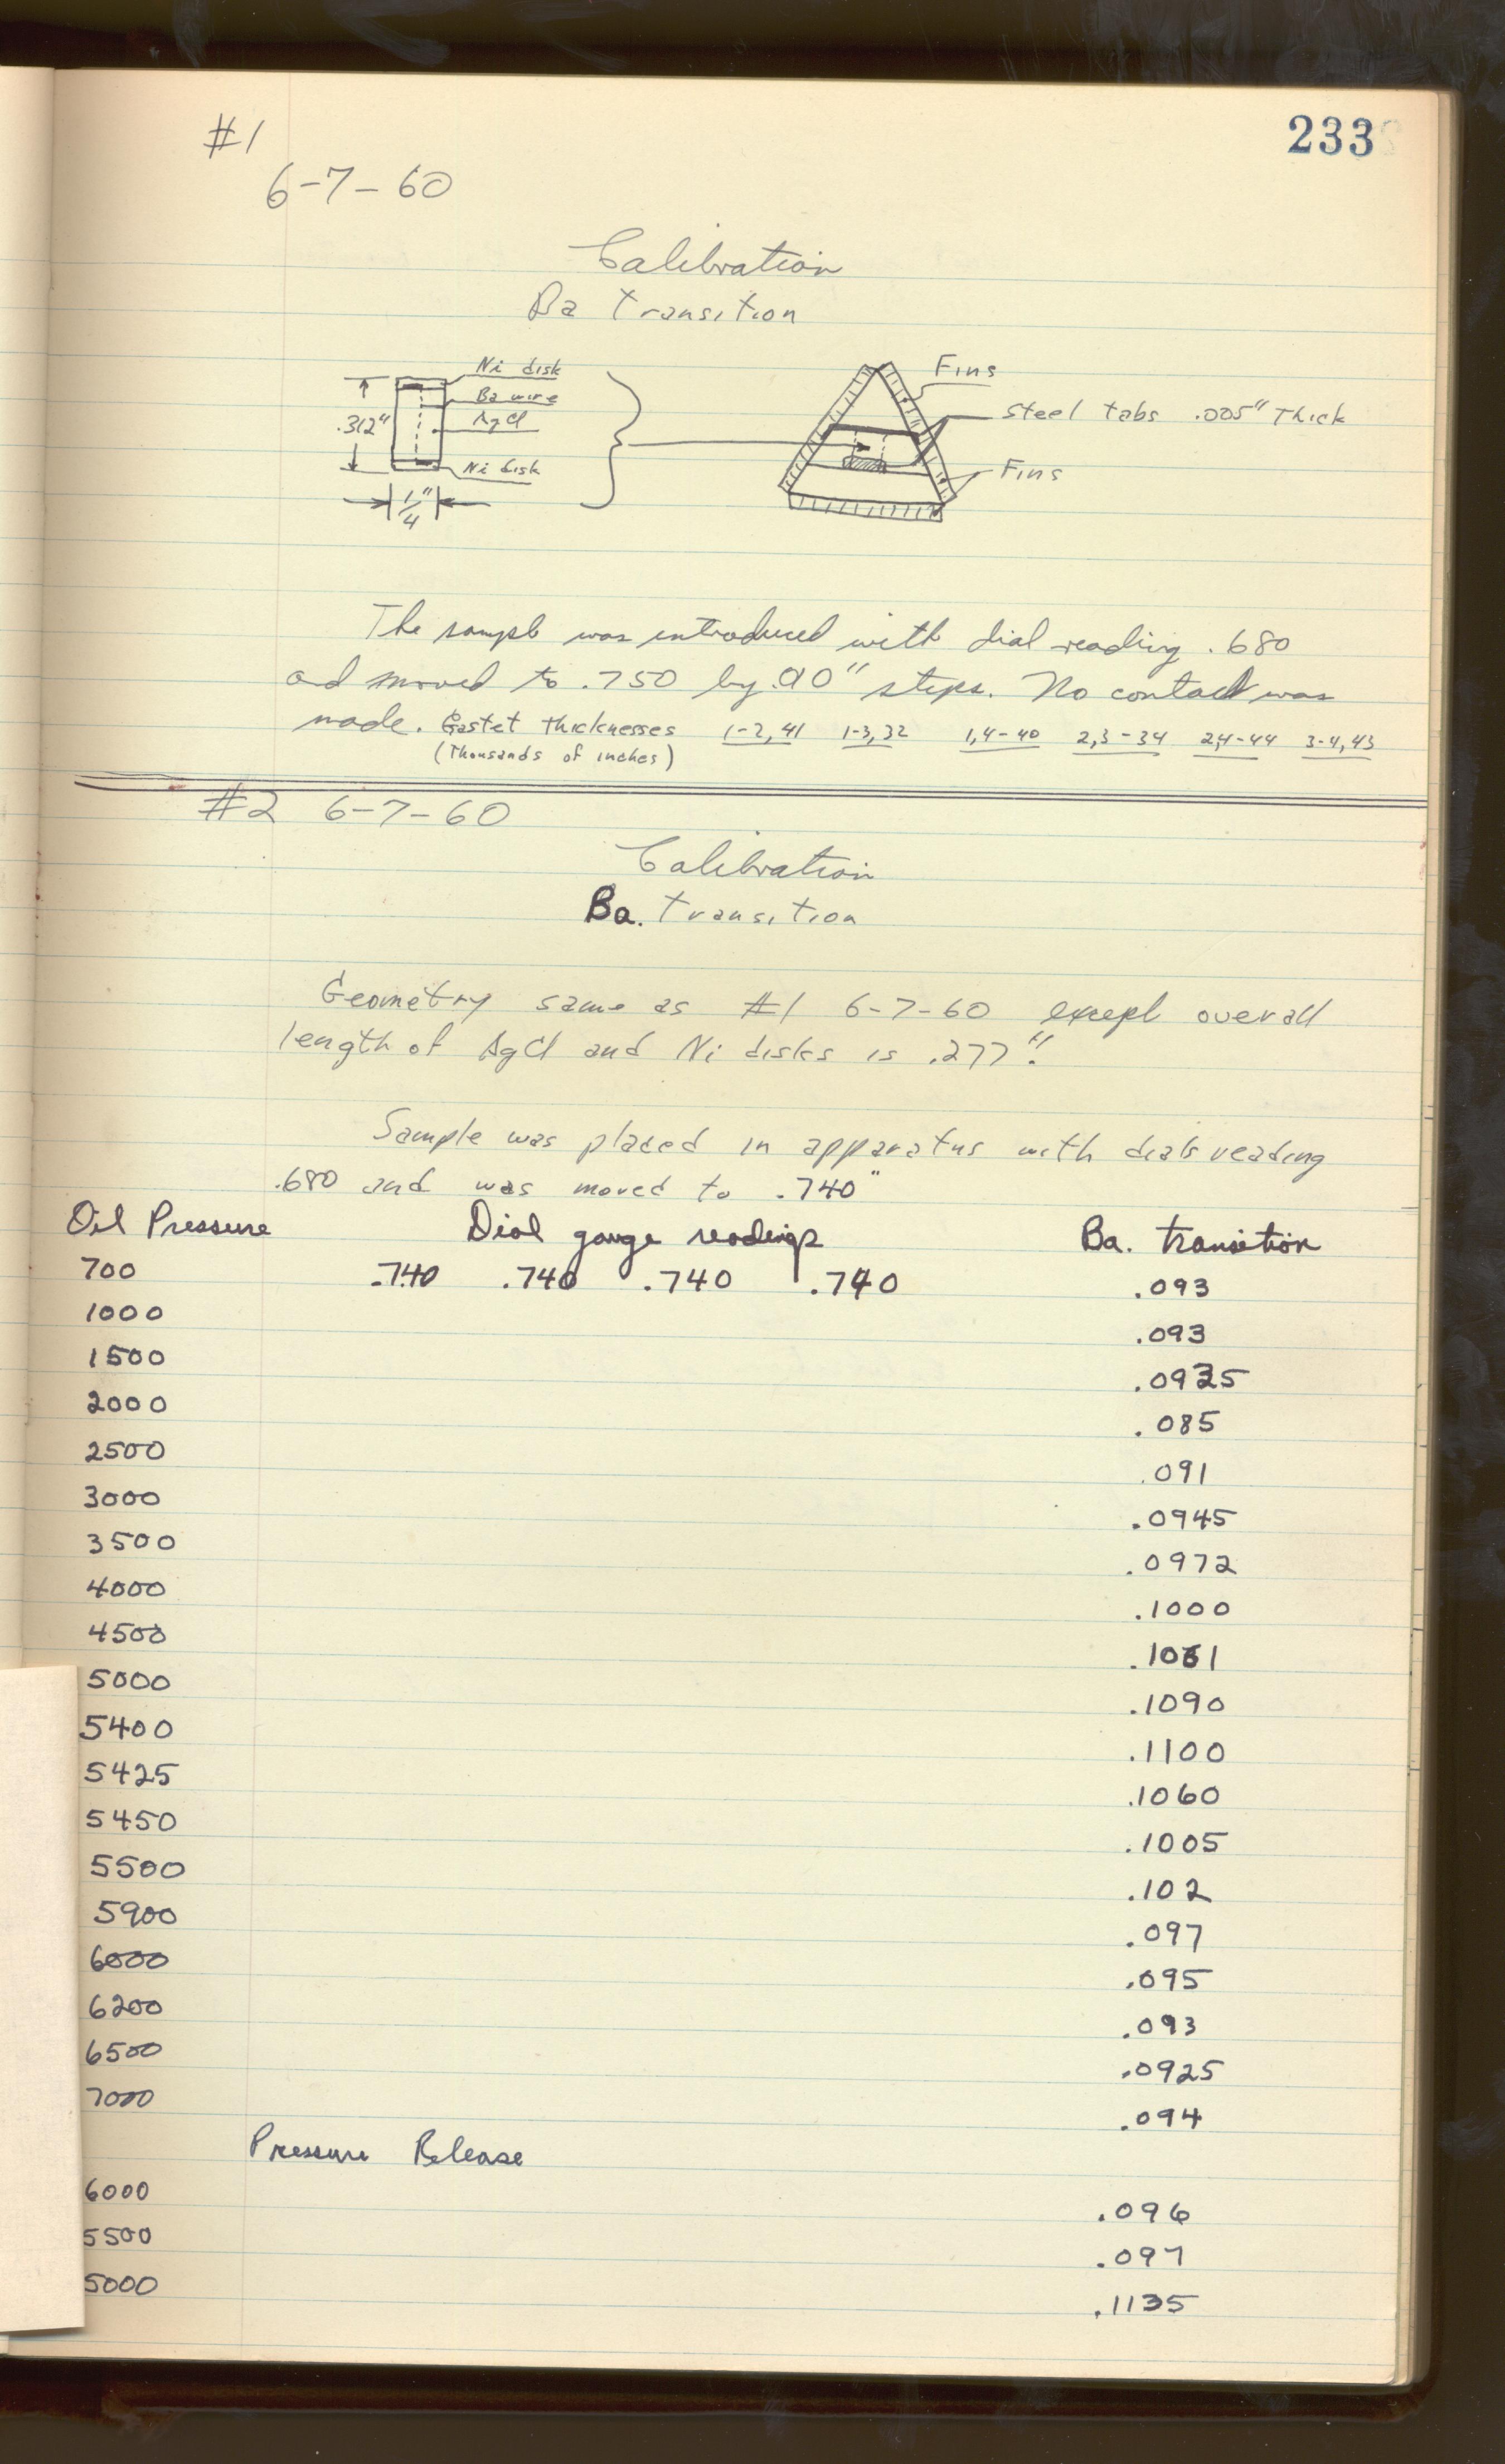 233
#1
6-7-60
Calibration
Ba Transition
Ni disk
Ba wire
AgCl
Ni disk
.312"
1/4"
Fins
Steel tabs .005" Thick
Fins
The sample was introduced with dial reading .680
and moved to .750 by .010" steps. No contact was
made. Gasket thicknesses 1-2, 41 1-3, 32 1,4-40 2,3-34 2,4-44 3-4, 43
(Thousands of inches)
#2 6-7-60
Calibration
Ba. Transition
Geometry same as #1 6-7-60 except overall
length of AgCl and Ni disks is .277".
Sample was placed in apparatus with dials reading
.680 and was moved to .740"
Oil Pressure Dial gauge readings Ba. transition
700 .740 .740 .740 .740 .093
1000 .093
1500 .0925
2000 .085
2500 .091
3000 .0945
3500 .0972
4000 .1000
4500 .1061
5000 .1090
5400 .1100
5425 .1060
5450 .1005
5500 .102
5900 .097
6000 .095
6200 .093
6500 .0925
7000 .094
Pressure Release
6000 .096
5500 .097
5000 .1135